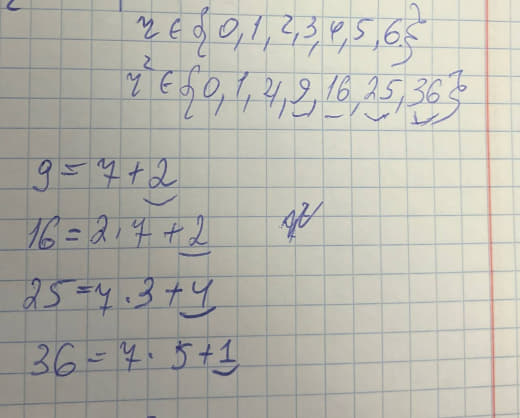 r ∈ {0, 1, 2, 3, 4, 5, 6}
r² ∈ {0, 1, 4, 9, 16, 25, 36}
9 = 7 + 2
16 = 2 · 7 + 2
25 = 7 · 3 + 4
36 = 7 · 5 + 1